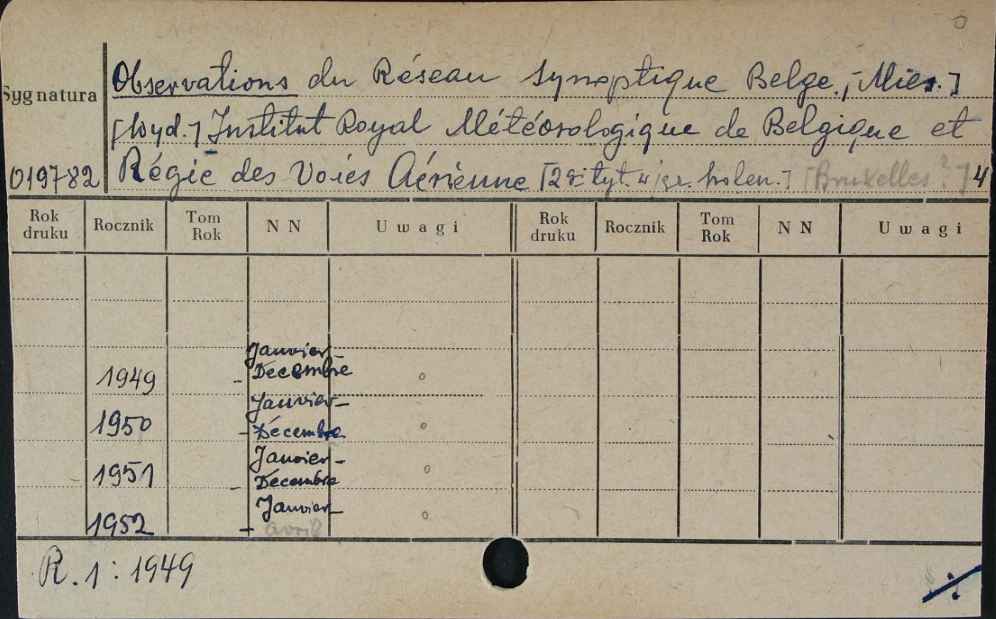 Observations du Réseau Synoptique Belge. [Mies.]
Sygnatura
[Wyd.] Institut Royal Météorologique de Belgique et
019782 Régie des Voies Aérienne [2gi tyt. w jęz. holen.] [Bruxelles ?] 4°
Rok druku Rocznik Tom Rok NN Uwagi Rok druku Rocznik Tom Rok NN Uwagi
Janvier-
1949 - Décembre °
Janvier-
1950 - Décembre °
Janvier-
1951 - Décembre °
Janvier-
1952 - avril °
R. 1: 1949